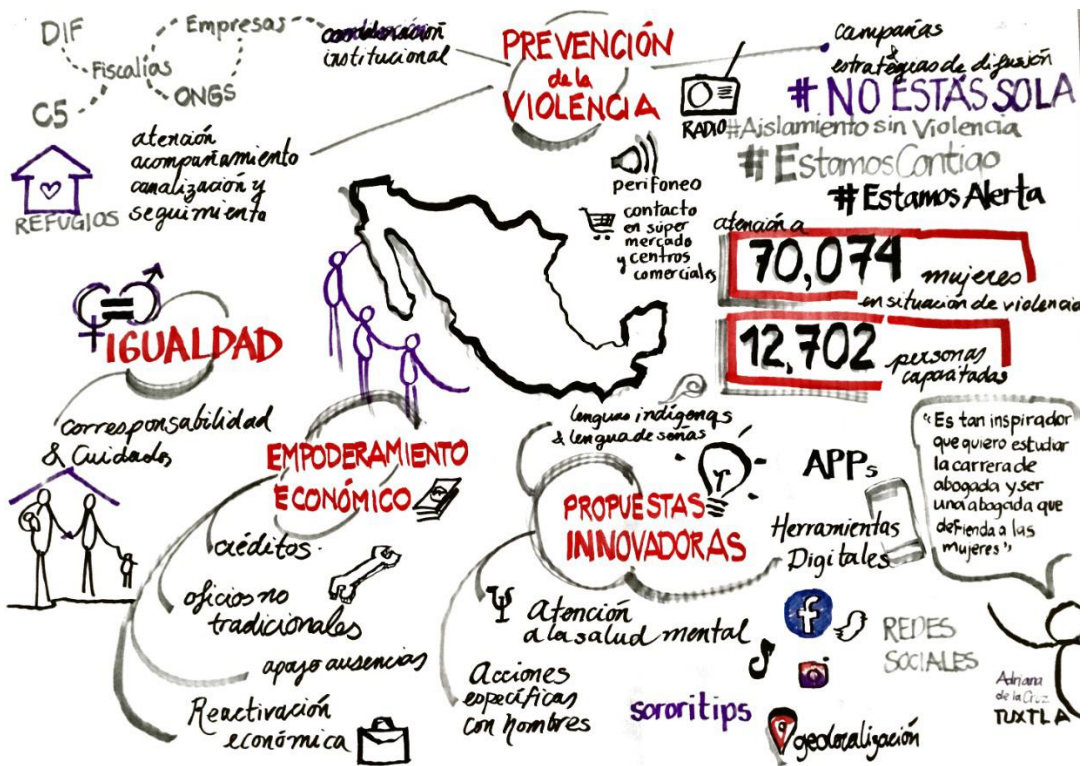 DIF
Empresas
Fiscalías
ONGS
C5
institucional
atención
acompañamiento
canalización y
seguimiento
REFUGIOS
PREVENCIÓN
de la
VIOLENCIA
campañas
estratéguas de difusión
RADIO
#NO ESTÁS SOLA
#Aislamiento sin Violencia
#EstamosContigo
#EstamosAlerta
perifoneo
contacto
en súper
mercado
y centros
comerciales
atención a
70,074 mujeres
en situación de violencia
12,702 personas
capacitadas
IGUALDAD
corresponsabilidad
& Cuidados
EMPODERAMIENTO
ECONÓMICO
créditos
oficios no
tradicionales
apoyo ausencias
Reactivación
económica
lenguas indígenas
& lengua de señas
PROPUESTAS
INNOVADORAS
Atención
a la salud mental
Acciones
específicas
con hombres
APPs
Herramientas
Digitales
REDES
SOCIALES
sororitips
geolocalización
"Es tan inspirador
que quiero estudiar
la carrera de
abogada y ser
una abogada que
defienda a las
mujeres"
Adriana
de la Cruz
TUXTLA